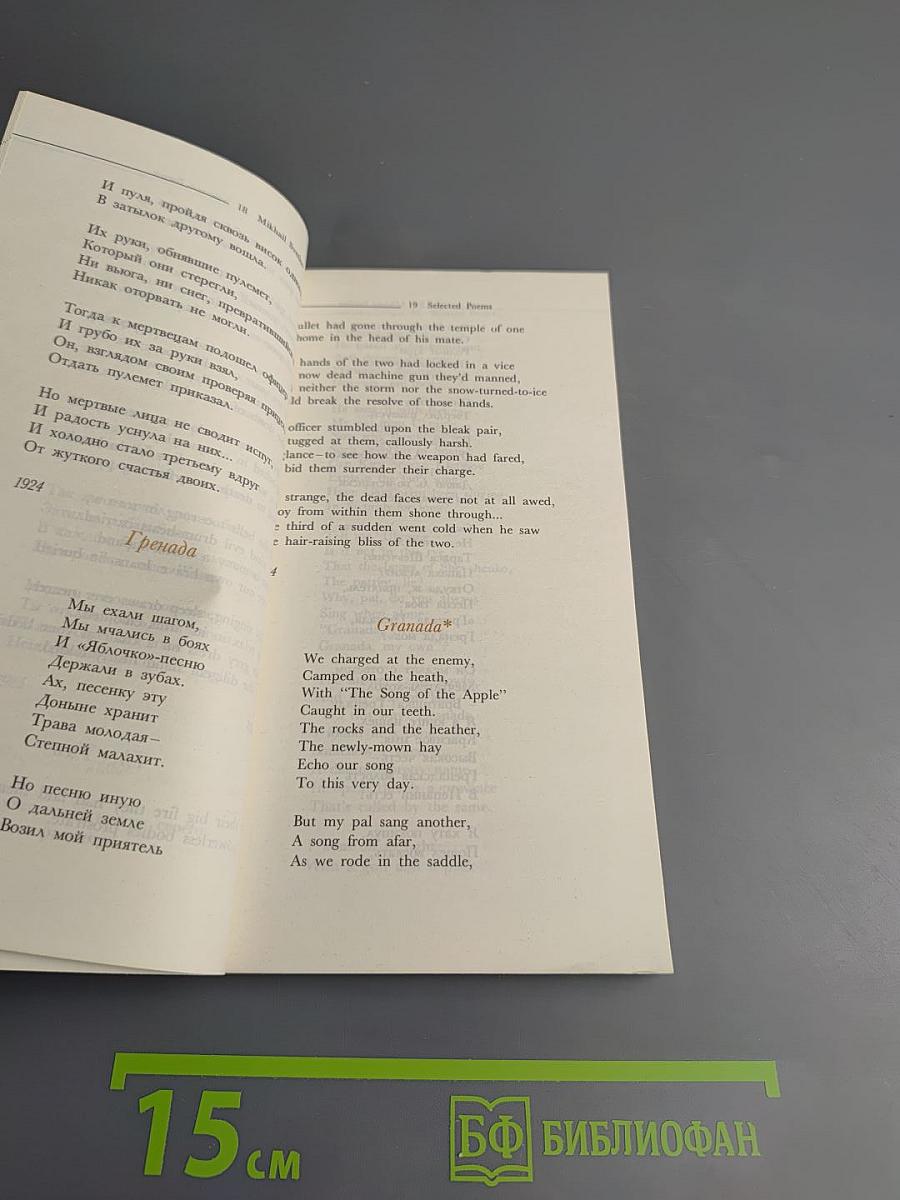 18 Mikhail
И пуля, пройдя сквозь висок
В затылок другому вошла.
Их руки, обнявшие пулемет,
Который они стерегли,
Ни вьюга, ни снег, превратившийся
Никак оторвать не могли.
Тогда к мертвецам подошел
И грубо их за руки взял,
Он, взглядом своим проверяя
Отдать пулемет приказал.
Но мертвые лица не сводит испуг,
И радость уснула на них...
И холодно стало третьему вдруг
От жуткого счастья двоих.
1924
Гренада
Мы ехали шагом,
Мы мчались в боях
И «Яблочко»-песню
Держали в зубах.
Ах, песенку эту
Доныне хранит
Трава молодая—
Степной малахит.
Но песню иную
О дальней земле
Возил мой приятель
19 Selected Poems
ullet had gone through the temple of one
home in the head of his mate.
hands of the two had locked in a vice
now dead machine gun they'd manned,
neither the storm nor the snow-turned-to-ice
ld break the resolve of those hands.
officer stumbled upon the bleak pair,
tugged at them, callously harsh.
lance—to see how the weapon had fared,
bid them surrender their charge.
strange, the dead faces were not at all awed,
oy from within them shone through...
e third of a sudden went cold when he saw
e hair-raising bliss of the two.
4
Granada*
We charged at the enemy,
Camped on the heath,
With “The Song of the Apple”
Caught in our teeth.
The rocks and the heather,
The newly-mown hay
Echo our song
To this very day.
But my pal sang another,
A song from afar,
As we rode in the saddle,
15 см
БФ БИБЛИОФАН